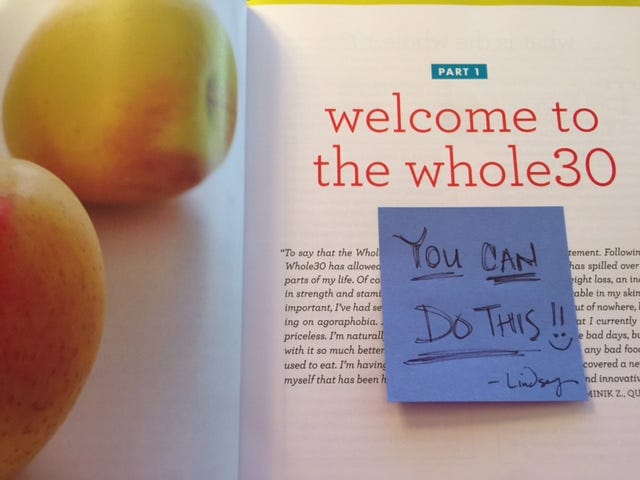 PART 1
welcome to
the whole30
"To say that the Whol tement. Followin
Whole30 has allowed has spilled over
parts of my life. Of co ight loss, an in
in strength and stami able in my skin
important, I've had se ut of nowhere,
ing on agoraphobia. at I currently
priceless. I'm naturall e bad days, bu
with it so much better any bad foo
used to eat. I'm having covered a ne
myself that has been h nd innovativ
MINIK Z., QU
YOU CAN
DO THIS!!
- Lindsey